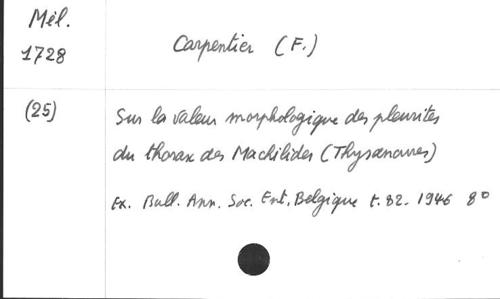 Mél.
1728
Carpentier (F.)
(25)
Sur la valeur morphologique des pleurites
du thorax des Machilides (Thysanoures)
Ex. Bull. Ann. Soc. Ent. Belgique t. 82. 1946 8°